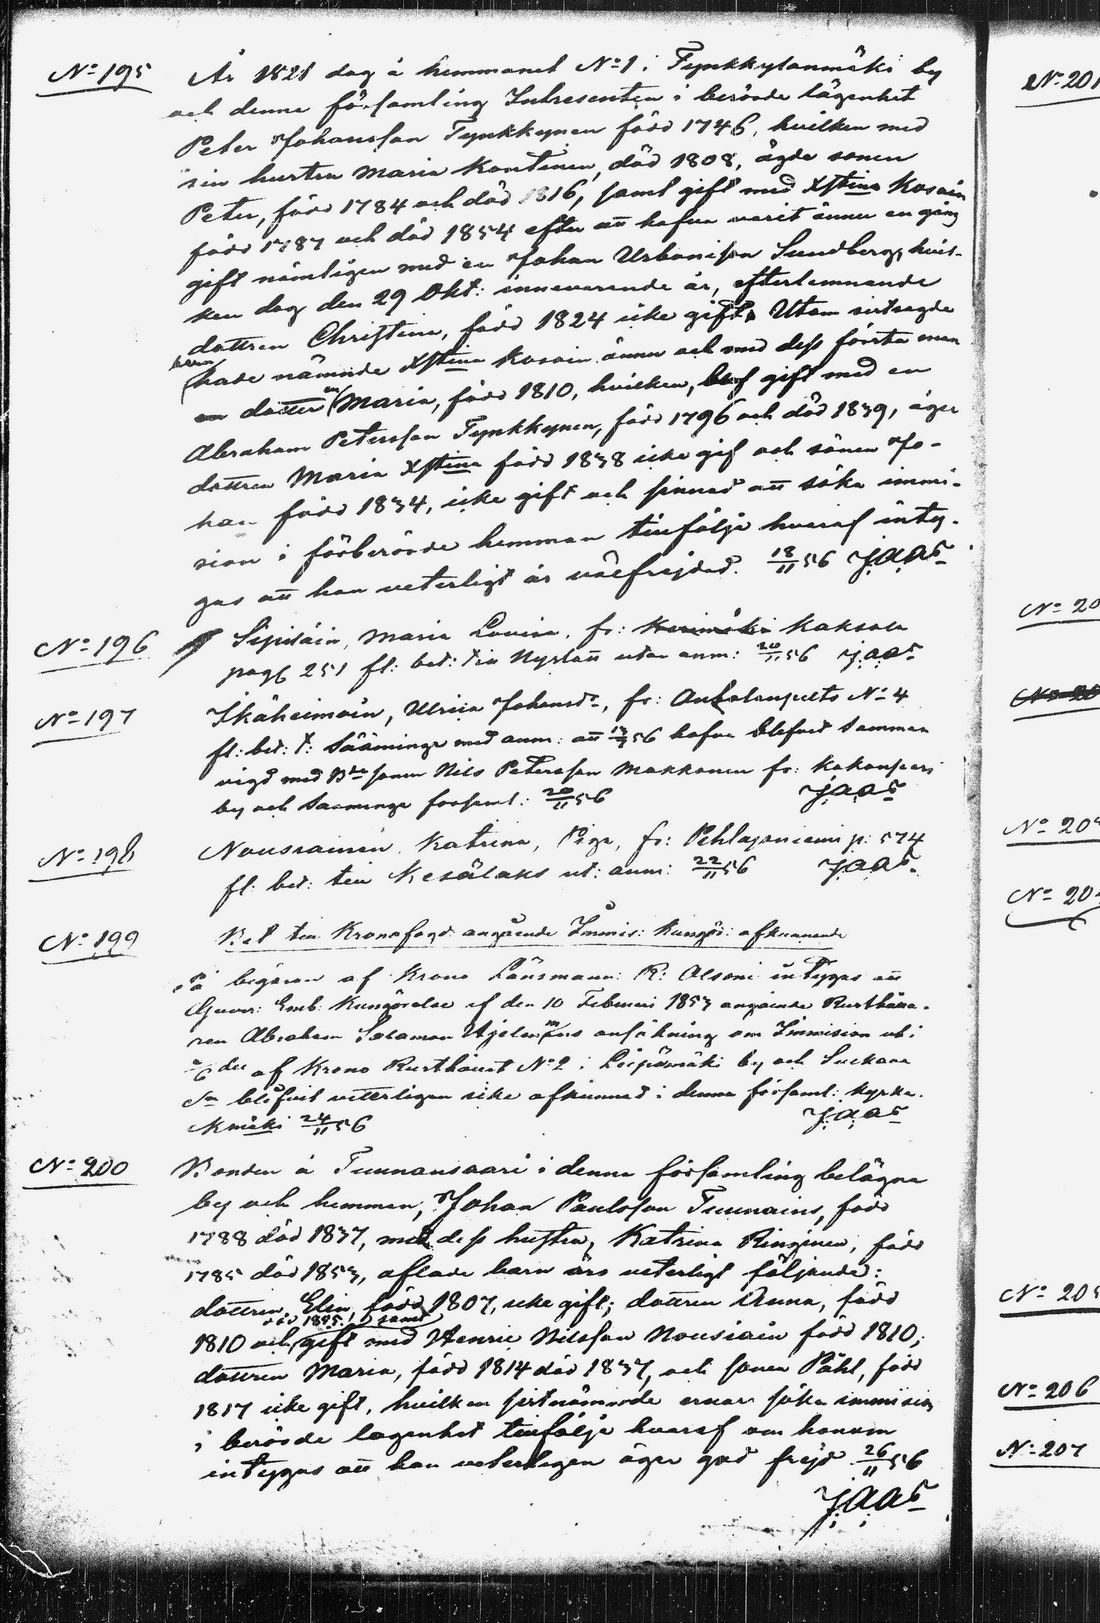 No 195 År 1821 dog å hemmanet No 1 i Tynkkylänmäki by
och denna församling Intresenten i berörde lägenhet
Peter Johansson Tynkkynen född 1746, hvilken med
sin hustru Maria Kontinen, död 1808, ägde sonen
Peter, född 1784 och död 1816, samt gift med Xstina Kosoin
född 1787 och död 1854 efter att hafva varit ännu en gång
gift nämligen med en Johan Urbanisson Sundberg, hvil-
ken dog den 29 Okt: innevarande år, efterlemnande
dottren Christina, född 1824 icke gift. Utom sistsagde
barn
hade nämnde Xstina Kosoin ännu och med dess första man
en dotter Maria, född 1810, hvilken, gift med en
Abraham Petersson Tynkkynen, född 1796 och död 1839, äger
dottren Maria Xstina född 1838 icke gift och sonen Jo-
han född 1834, icke gift och sinnad att söka immi-
sion i förberörde hemman tillfölje hvaraf inty-
gas att han veterligt är välfrejdad. 18/11 56 J.A.A.
No 196 Sipiläin, Maria Lovisa, fr: Kaksola
pag 251 fl: bet: till Nyslott utan anm: 20/11 56 J.A.A.
No 197 Ikäheimoin, Ulrica Johansdr, fr: No 4
fl: bet: t: Sääminge med anm: att 56 hafva blefvet samman
vigd med Bdesonen Nils Petersson Makkonen fr: Kokonsaari
by och Sääminge församl: 20/11 56 J.A.A.
No 198 Nousiainen Katrina, Piga, fr: Pehlajaniemi p: 574
fl: bet: till Kesälaks ut: anm: 22/11 56 J.A.A.
No 199 Bet till Kronofogd: angående Immis: Kungör: afkunnande
På begäran af Krono Länsman: R: Alsoni intygas att
Guver: Emb: Kungörelse af den 10 Februari 1853 angående Rusthålla-
ren Abraham Salamon ansökning om Immision uti
af Krono Rusthållet No 2 i by och
Sn blifvit vetterligen icke afkunnad i denna församl: kyrka.
24/11 56 J.A.A.
No 200 Bonden å Tunnansaari i denna församling belägne
by och hemman, Johan Paulsson Tunnains, född
1788 död 1837, med dess hustru, Katrina Ringinen, född
1785 död 1853, aflade barn äro veterligt följande:
dottren, Elin, född 1807, icke gift; dottren Anna, född
död 1855 samt
1810 och gift med Henric Nilsson Nousiain född 1810;
dottren Maria, född 1814 död 1837, och sonen Påhl, född
1817 icke gift, hvilken sistnämnde ernar söka immision
i berörde lägenhet tillfölje hvaraf om honom
intygas att han veterligen äger god frejd 26/11 56
J.A.A.
No 201
No 205
No 206
No 207